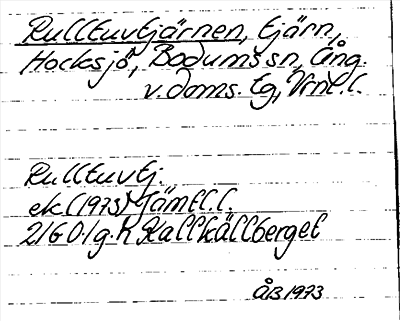 Rulltuvtjärnen, tjärn,
Hocksjö, Bodums sn, Ång.
v.doms. tg, Vrnl.l.
Rulltuvtj.
ek (1973) Jämtl.l.
21G 0-1 g.k Kallkällberget
ÅB 1973